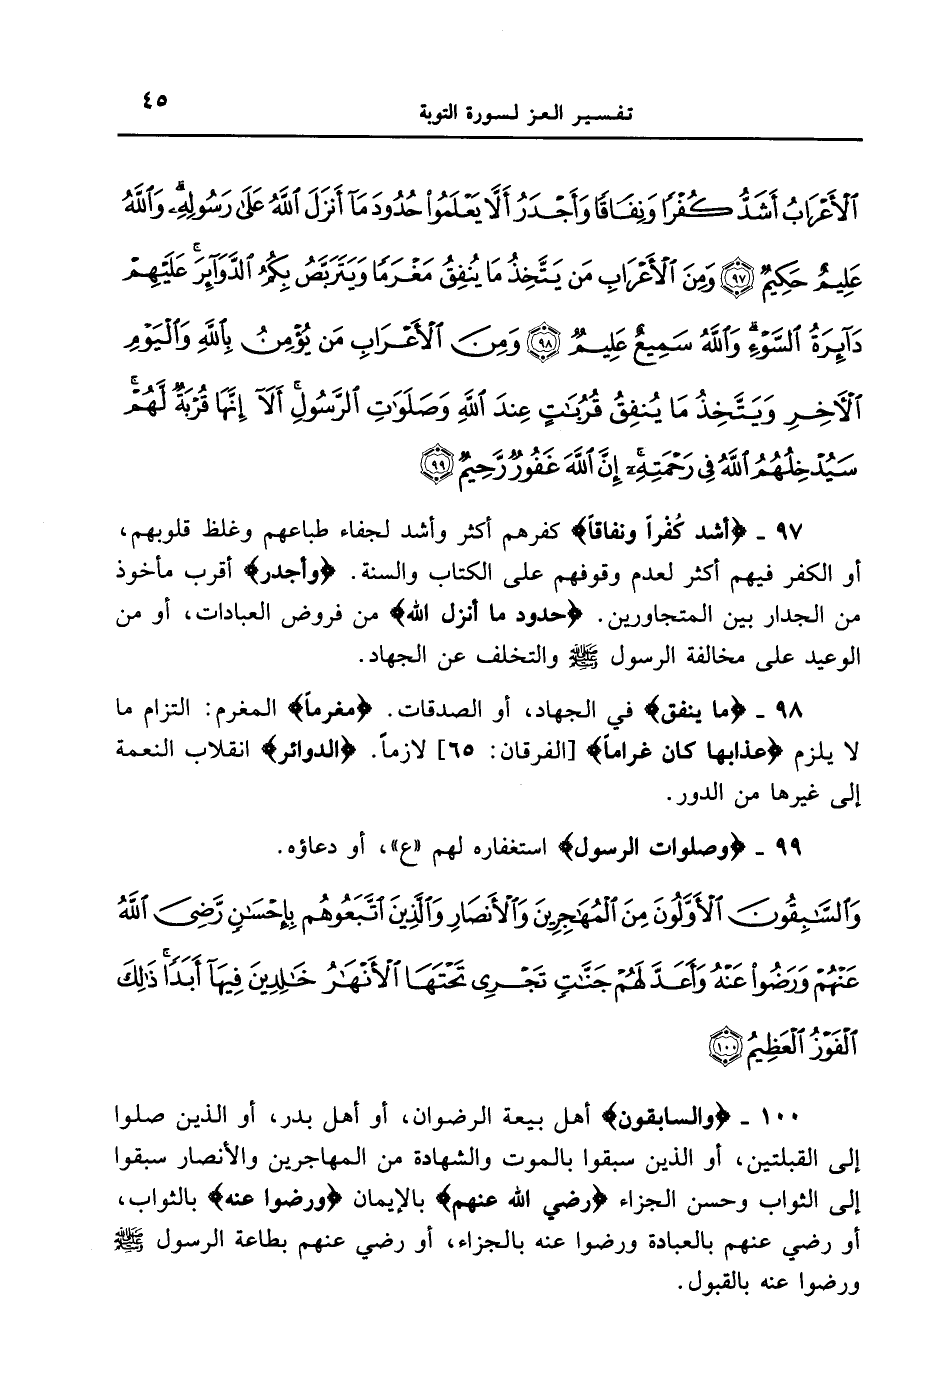 تفسير العز لسورة التوبة ٤٥
ٱلْأَعْرَابُ أَشَدُّ كُفْرًا وَنِفَاقًا وَأَجْدَرُ أَلَّا يَعْلَمُوا۟ حُدُودَ مَآ أَنزَلَ ٱللَّهُ عَلَىٰ رَسُولِهِۦ ۗ وَٱللَّهُ
عَلِيمٌ حَكِيمٌ ﴿٩٧﴾ وَمِنَ ٱلْأَعْرَابِ مَن يَتَّخِذُ مَا يُنفِقُ مَغْرَمًا وَيَتَرَبَّصُ بِكُمُ ٱلدَّوَآئِرَ ۚ عَلَيْهِمْ
دَآئِرَةُ ٱلسَّوْءِ ۗ وَٱللَّهُ سَمِيعٌ عَلِيمٌ ﴿٩٨﴾ وَمِنَ ٱلْأَعْرَابِ مَن يُؤْمِنُ بِٱللَّهِ وَٱلْيَوْمِ
ٱلْآخِرِ وَيَتَّخِذُ مَا يُنفِقُ قُرُبَـٰتٍ عِندَ ٱللَّهِ وَصَلَوَٰتِ ٱلرَّسُولِ ۚ أَلَآ إِنَّهَا قُرْبَةٌ لَّهُمْ ۚ
سَيُدْخِلُهُمُ ٱللَّهُ فِى رَحْمَتِهِۦٓ ۗ إِنَّ ٱللَّهَ غَفُورٌ رَّحِيمٌ ﴿٩٩﴾
٩٧ ـ ﴿أشد كُفْراً ونفاقاً﴾ كفرهم أكثر وأشد لجفاء طباعهم وغلظ قلوبهم،
أو الكفر فيهم أكثر لعدم وقوفهم على الكتاب والسنة. ﴿وأجدر﴾ أقرب مأخوذ
من الجدار بين المتجاورين. ﴿حدود ما أنزل الله﴾ من فروض العبادات، أو من
الوعيد على مخالفة الرسول ﷺ والتخلف عن الجهاد.
٩٨ ـ ﴿ما ينفق﴾ في الجهاد، أو الصدقات. ﴿مغرماً﴾ المغرم: التزام ما
لا يلزم ﴿عذابها كان غراماً﴾ [الفرقان: ٦٥] لازماً. ﴿الدوائر﴾ انقلاب النعمة
إلى غيرها من الدور.
٩٩ ـ ﴿وصلوات الرسول﴾ استغفاره لهم «ع»، أو دعاؤه.
وَٱلسَّـٰبِقُونَ ٱلْأَوَّلُونَ مِنَ ٱلْمُهَـٰجِرِينَ وَٱلْأَنصَارِ وَٱلَّذِينَ ٱتَّبَعُوهُم بِإِحْسَـٰنٍ رَّضِىَ ٱللَّهُ
عَنْهُمْ وَرَضُوا۟ عَنْهُ وَأَعَدَّ لَهُمْ جَنَّـٰتٍ تَجْرِى تَحْتَهَا ٱلْأَنْهَـٰرُ خَـٰلِدِينَ فِيهَآ أَبَدًا ۚ ذَٰلِكَ
ٱلْفَوْزُ ٱلْعَظِيمُ ﴿١٠٠﴾
١٠٠ ـ ﴿والسابقون﴾ أهل بيعة الرضوان، أو أهل بدر، أو الذين صلوا
إلى القبلتين، أو الذين سبقوا بالموت والشهادة من المهاجرين والأنصار سبقوا
إلى الثواب وحسن الجزاء ﴿رضي الله عنهم﴾ بالإيمان ﴿ورضوا عنه﴾ بالثواب،
أو رضي عنهم بالعبادة ورضوا عنه بالجزاء، أو رضي عنهم بطاعة الرسول ﷺ
ورضوا عنه بالقبول.